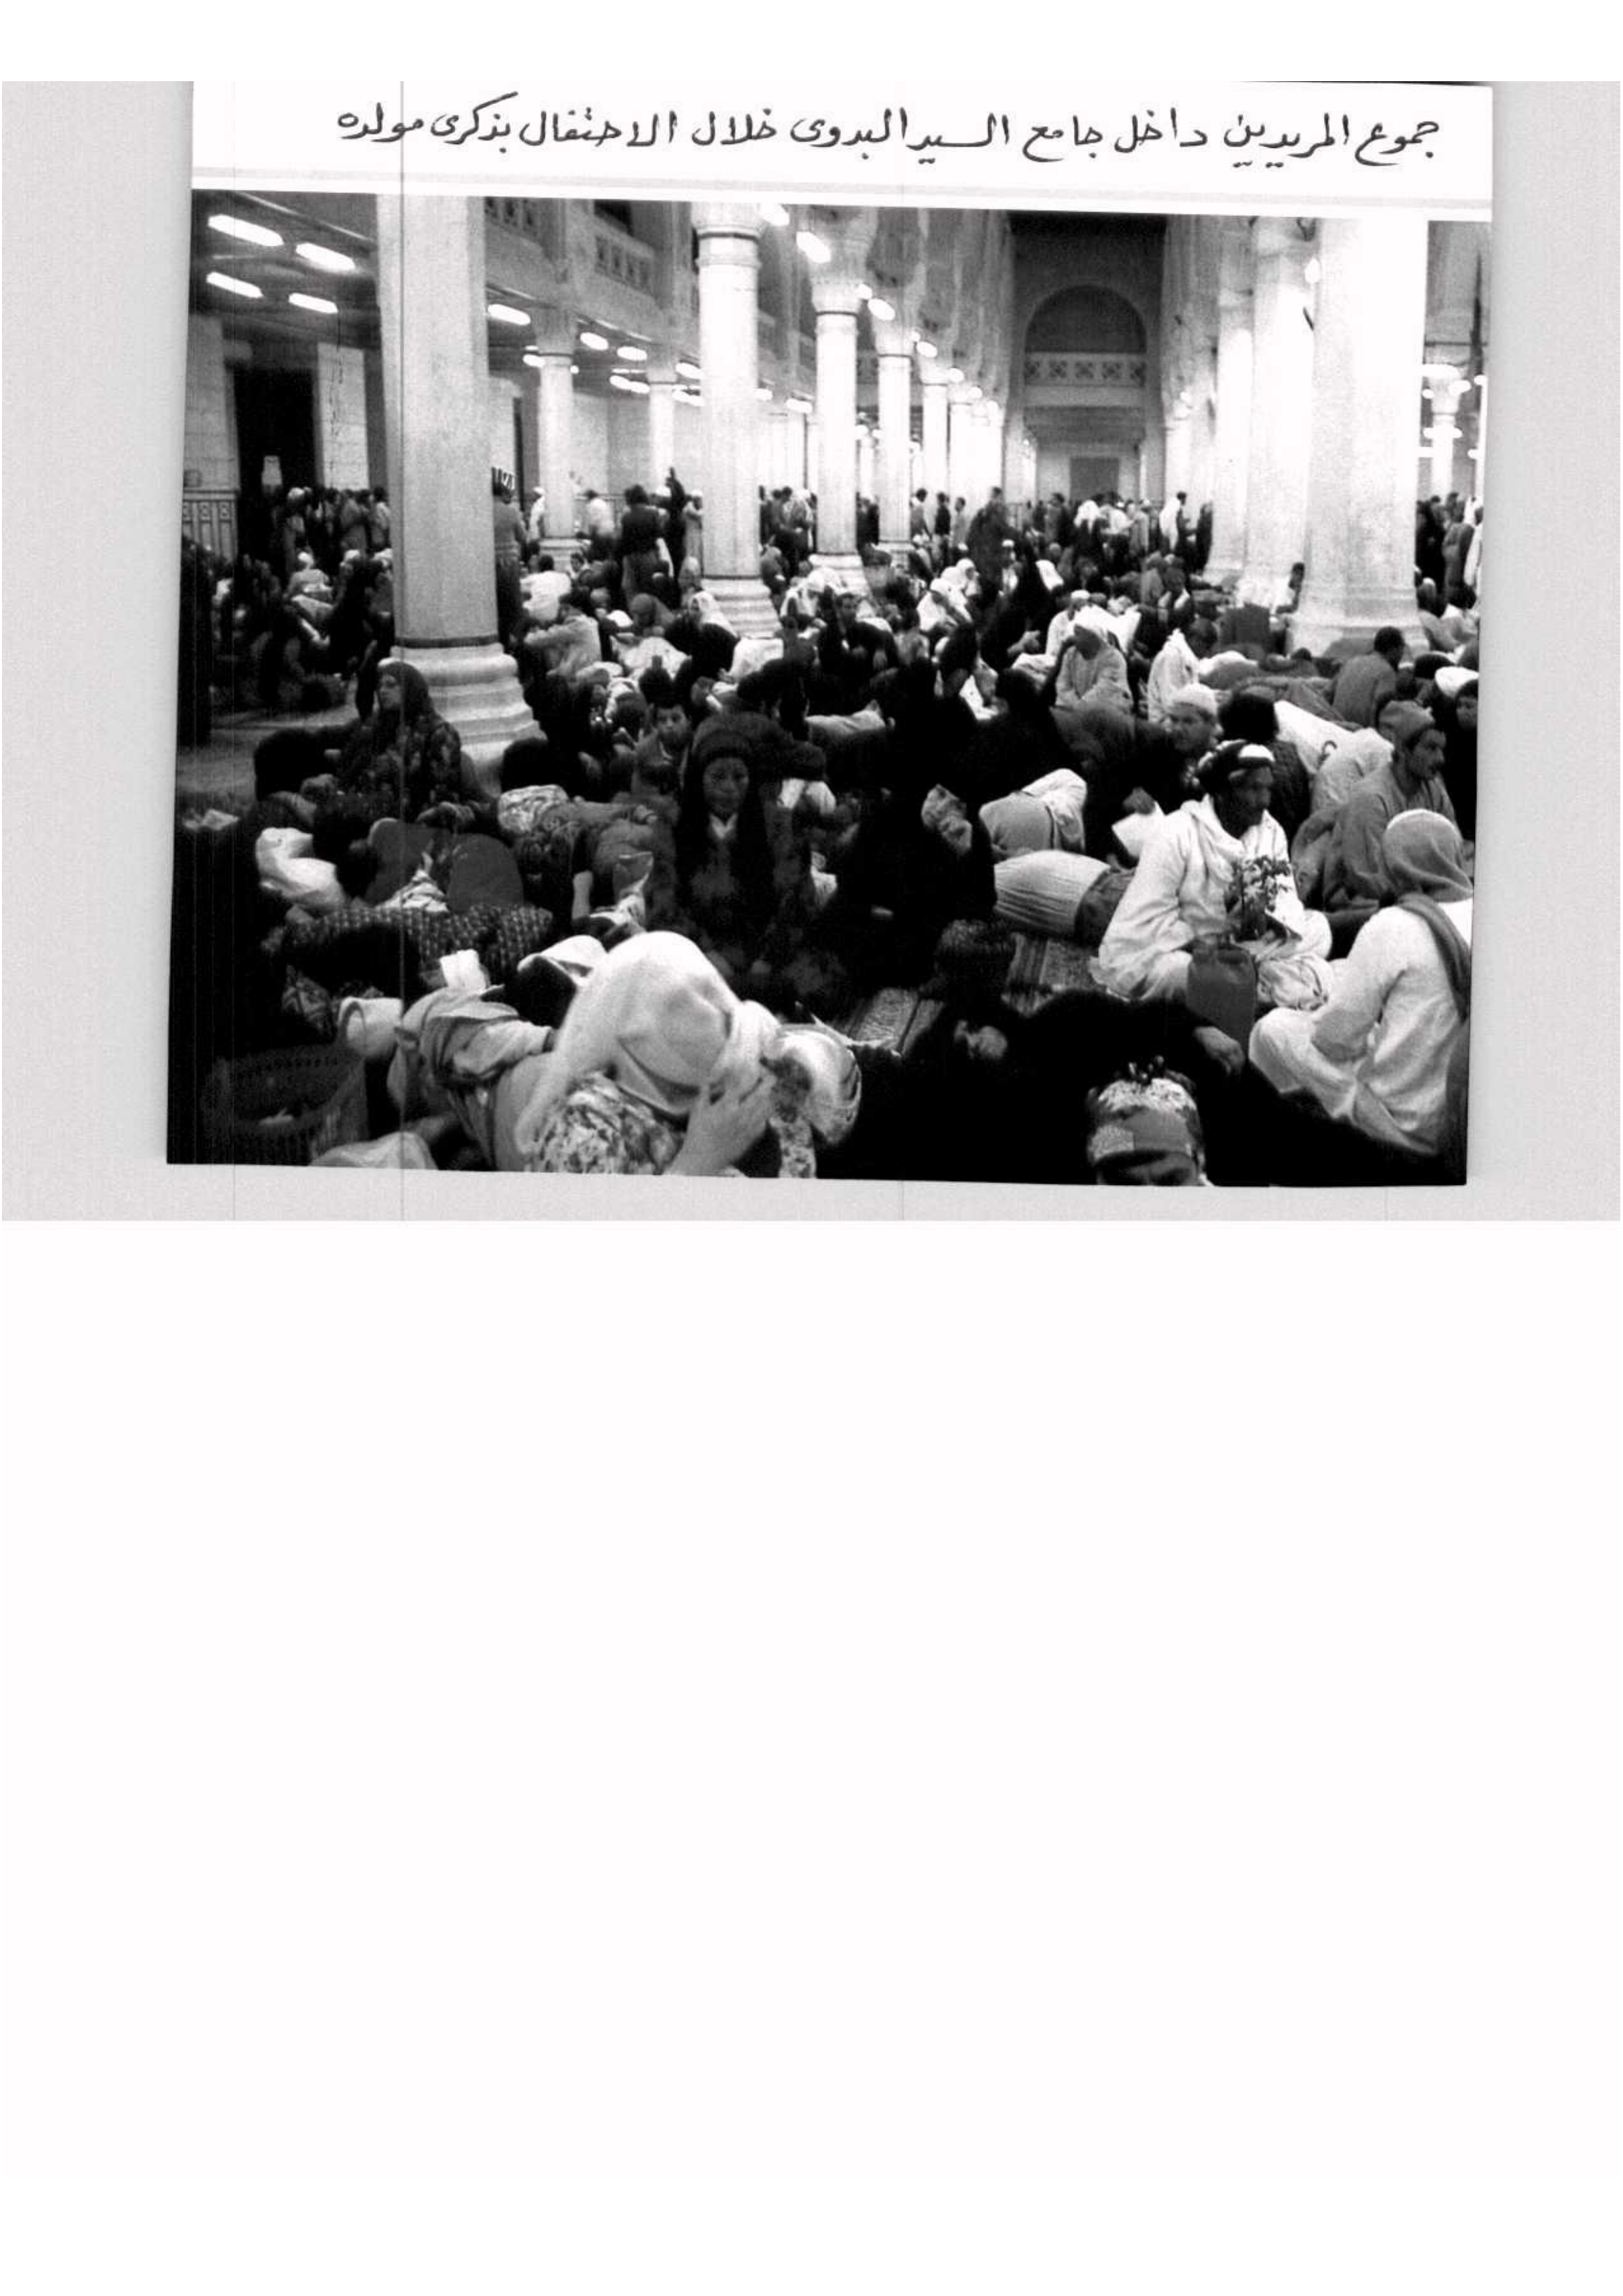 جموع المريدين داخل جامع السيد البدوى خلال الاحتفال بذكرى مولده